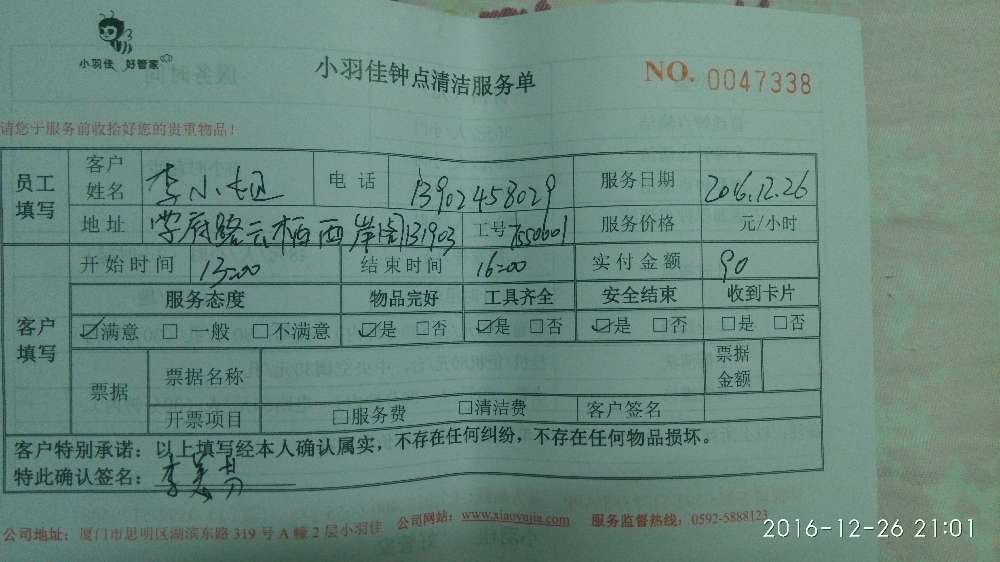 小羽佳 好管家
小羽佳钟点清洁服务单
NO. 0047338
请您于服务前收拾好您的贵重物品！
员工填写 客户姓名 李小 电话 13902458029 服务日期 2016.12.26
地址 学府路云栖西岸阁131903 工号 7550601 服务价格 元/小时
客户填写 开始时间 13:00 结束时间 16:00 实付金额 90
服务态度 物品完好 工具齐全 安全结束 收到卡片
☑满意 □一般 □不满意 ☑是 □否 ☑是 □否 ☑是 □否 □是 □否
票据 票据名称 票据金额
开票项目 □服务费 □清洁费 客户签名
客户特别承诺：以上填写经本人确认属实，不存在任何纠纷，不存在任何物品损坏。
特此确认签名：李
公司地址：厦门市思明区湖滨东路319号A幢2层小羽佳 公司网站：www.xiaoyujia.com 服务监督热线：0592-5888123
2016-12-26 21:01